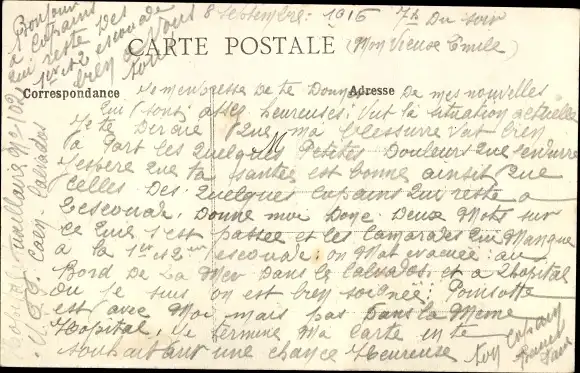 8 Septembre: 1916 7h Du soir
CARTE POSTALE (Mon Vieux Emile)
Correspondance
Adresse
Je m'empresse De te Donner De mes nouvelles
qui sont assez heureuses, Vut la situation actuelle
Je te Dirais que ma blessure vat bien
a part les quelques Petites Douleurs que j'endure
J'espère que ta santée est bonne ainsit que
celles Des quelques Copains qui reste a
L'escouade, Donne moi Donc Deux Mots sur
ce que s'est passée et les Camarades qui Manque
a la 1er et 2em escouade: on M'at évacuée au
Bord De La Mer Dans le Calvados, et a L'hopital
ou je suis on est bien soignée:
est avec Moi mais pas Dans la Meme
Hopital, Je termine Ma Carte en te
souhaitant une chance Heureuse
Ton Copain
Bonjour
a Copains
qui reste Des
1er et 2 escouade
bien a Vous
tous
Hopital Auxiliaire No 102
Caen - Calvados